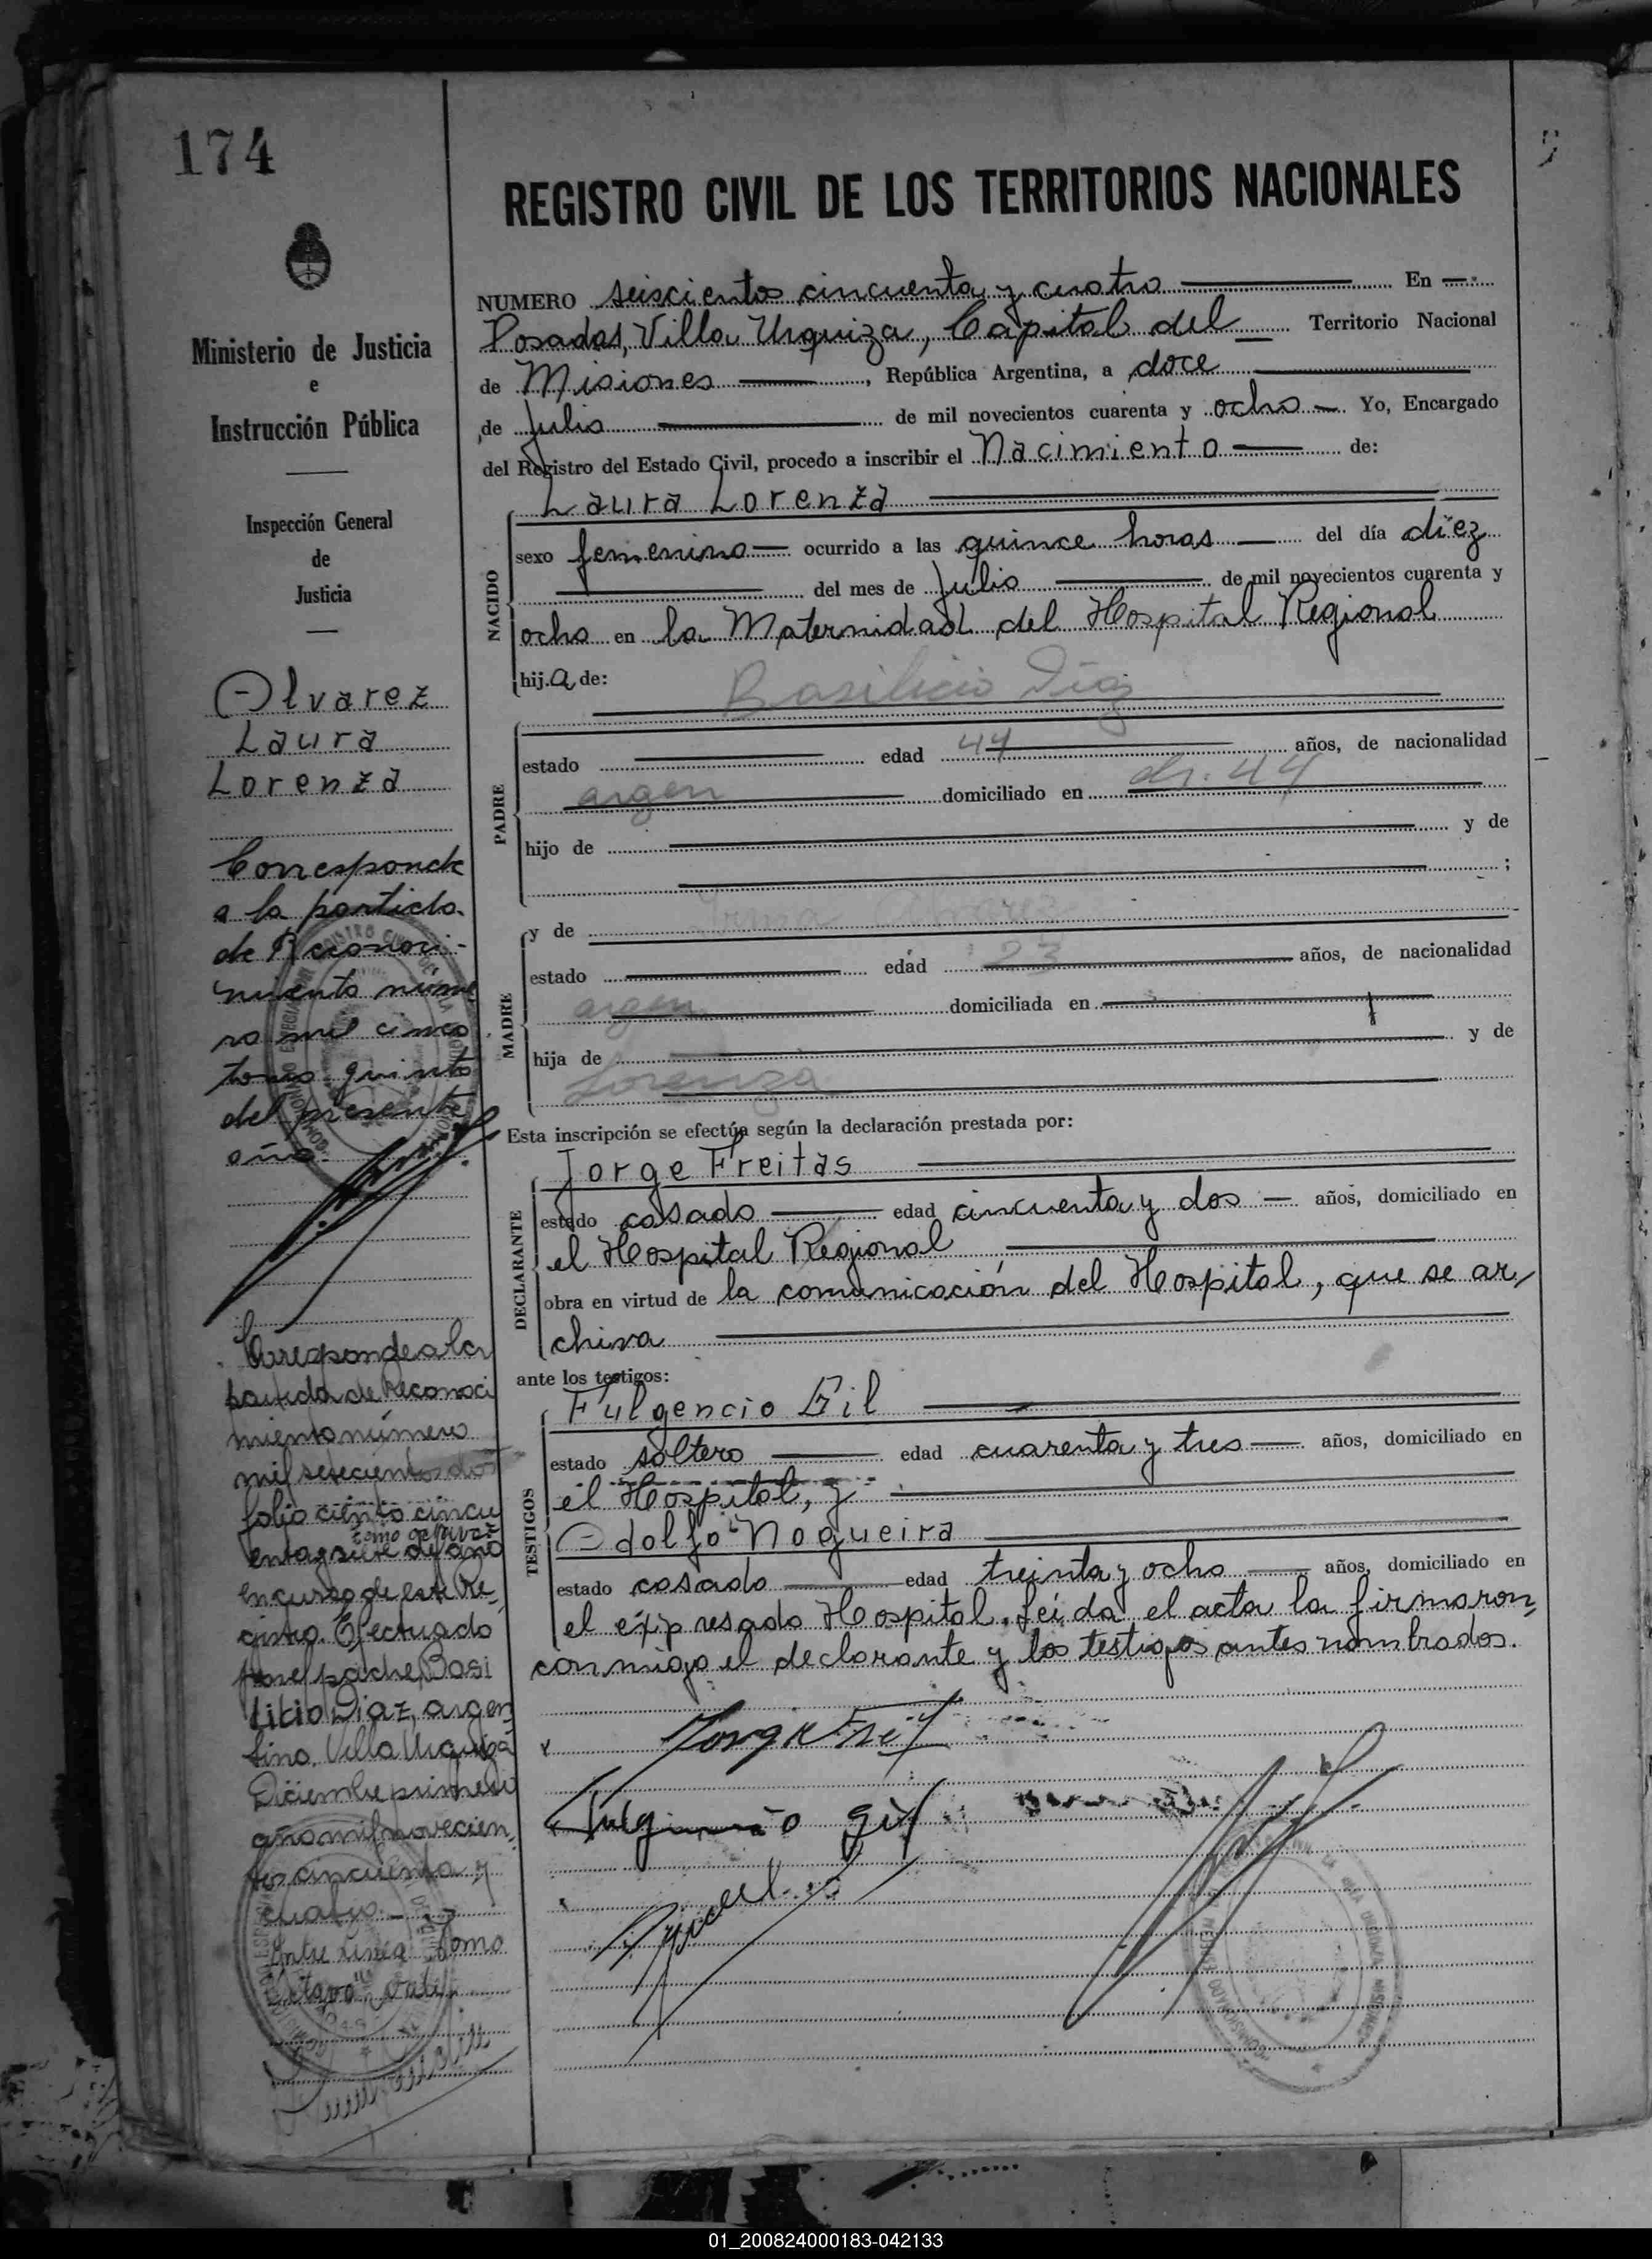 174
REGISTRO CIVIL DE LOS TERRITORIOS NACIONALES
Ministerio de Justicia
e
Instrucción Pública
Inspección General
de
Justicia
Alvarez
Laura
Lorenza
Corresponde
a la partida
de Reconoci-
miento núme
ro mil cinco
tomo quinto
del presente
año.
Corresponde a la
partida de Reconoci
miento número
mil setecientos dos
folio ciento cincu
tomo octavo
enta y siete del año
en curso de este Re-
gistro. Efectuado
por el padre Basi
licio Diaz, argen
tino. Villa Urquiza
Diciembre primero
año mil novecien-
tos cincuenta y
cuatro.
Entre linea "tomo
octavo" Vale.
NUMERO seiscientos cincuenta y cuatro En
Posadas, Villa Urquiza, Capital del Territorio Nacional
de Misiones, República Argentina, a doce
de Julio de mil novecientos cuarenta y ocho Yo, Encargado
del Registro del Estado Civil, procedo a inscribir el Nacimiento de:
Laura Lorenza
NACIDO
sexo femenino ocurrido a las quince horas del día diez
del mes de Julio de mil novecientos cuarenta y
ocho en la Maternidad del Hospital Regional
hija de:
Basilicio Diaz
PADRE
estado edad 44 años, de nacionalidad
argen domiciliado en ch. 44
hijo de y de
;
MADRE
y de Irma Alvarez
estado edad 23 años, de nacionalidad
argen domiciliada en
hija de y de
Lorenza
Esta inscripción se efectúa según la declaración prestada por:
DECLARANTE
Jorge Freitas
estado casado edad cincuenta y dos años, domiciliado en
el Hospital Regional
obra en virtud de la comunicación del Hospital, que se ar-
chiva
ante los testigos:
TESTIGOS
Fulgencio Gil
estado soltero edad cuarenta y tres años, domiciliado en
el Hospital, y
Adolfo Nogueira
estado casado edad treinta y ocho años, domiciliado en
el expresado Hospital. Leída el acta la firmaron
conmigo el declarante y los testigos antes nombrados.
Jorge Freit
Fulgencio Gil
01_200824000183-042133